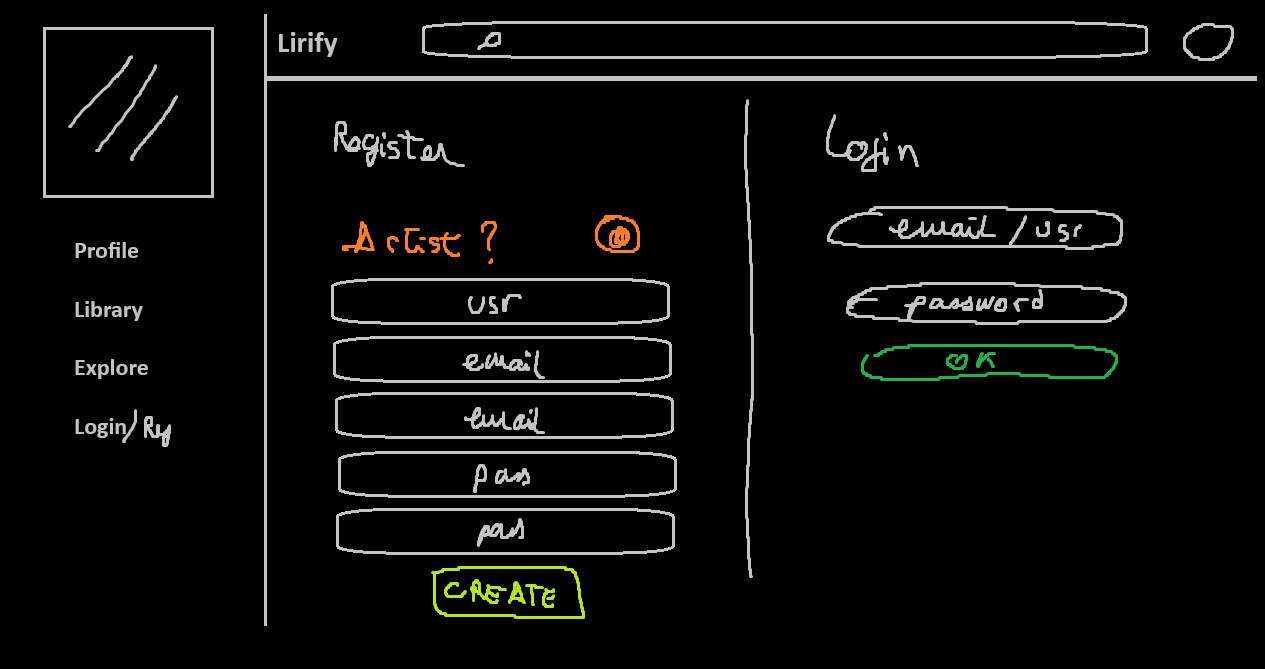 Lirify
Profile
Library
Explore
Login/Reg
Register
Artist ?
usr
email
email
pass
pass
CREATE
Login
email / usr
password
OK